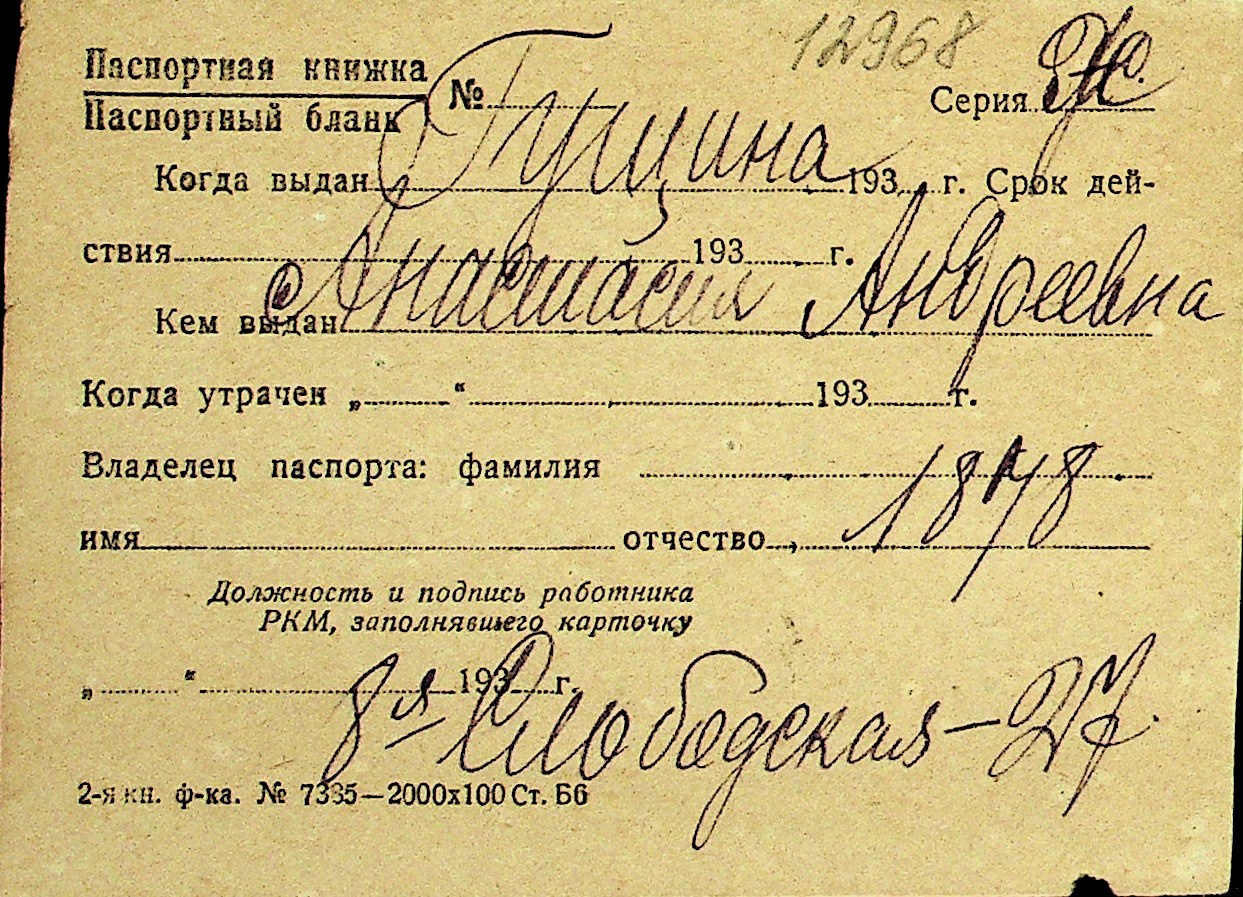 12968
Паспортная книжка
Паспортный бланк № Серия
Гущина
Когда выдан 193 г. Срок дей-
ствия 193 г.
Анастасия Андреевна
Кем выдан
Когда утрачен „ “ 193 г.
Владелец паспорта: фамилия
1878
имя отчество
Должность и подпись работника
РКМ, заполнявшего карточку
„ “ 193 г.
8я Слободская – 27.
2-я кн. ф-ка. № 7385—2000х100 Ст. Б6